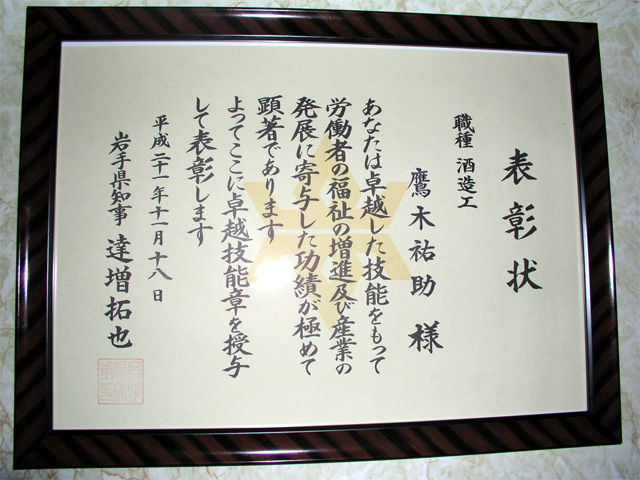 表彰状
職種 酒造工
鷹木祐助 様
あなたは卓越した技能をもって
労働者の福祉の増進及び産業の
発展に寄与した功績が極めて
顕著であります
よってここに卓越技能章を授与
して表彰します
平成二十一年十一月十八日
岩手県知事 達増拓也